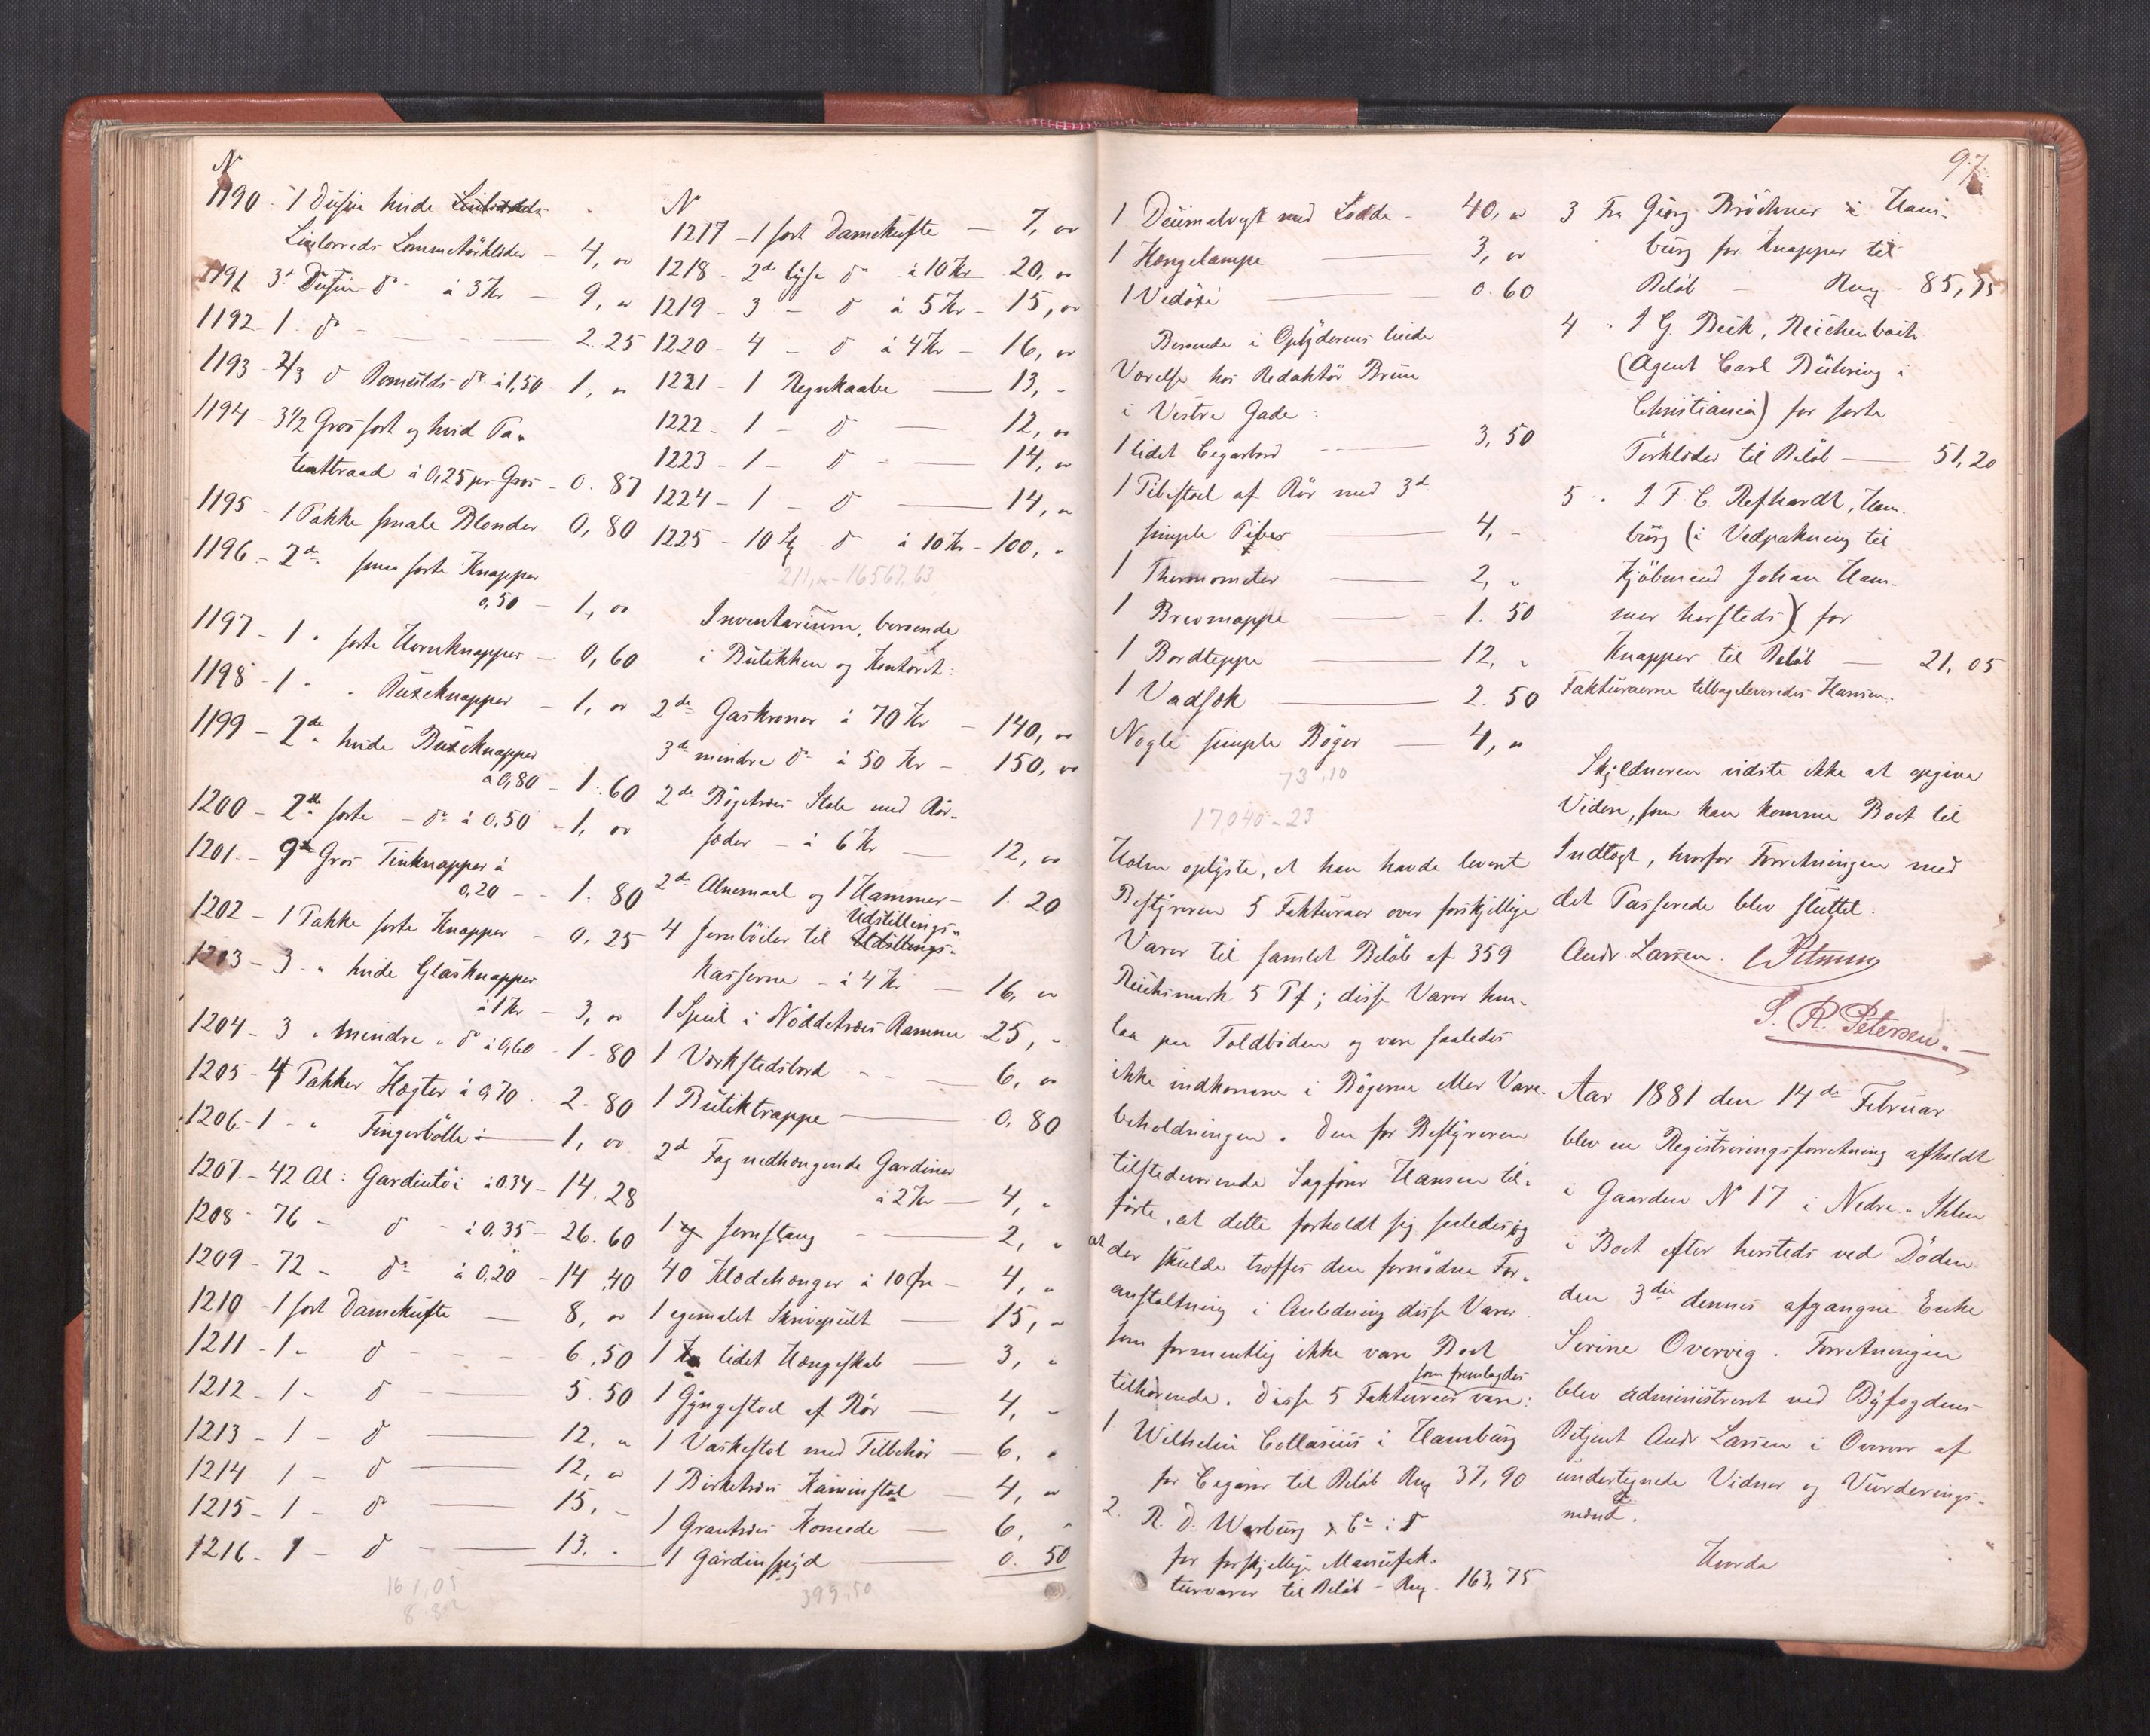 N
1190 - 1 Dusin hvide
Linlerreds Lommetørklæder - 4, 00
1191 3de Dusin do à 3 Kr - 9, "
1192 - 1 do - 2.25
1193 - 2/3 d Bomulds do à 1,50 - 1, "
1194 - 3 1/2 Gros sort og hvid Pa-
tenttraad à 0,25 pr Gros - 0. 87
1195 - 1 Pakke smale Blonder 0, 80
1196 - 2de smaa sorte Knapper
0,50 - 1, 00
1197 - 1 " sorte Hornknapper - 0, 60
1198 - 1 " " Buxeknapper - 1, 00
1199 - 2de " hvide Buxeknapper
à 0,80 - 1. 60
1200 - 2de sorte - do à 0,50 - 1, 00
1201 - 9 Gros Tinknapper à
0,20 - - 1. 80
1202 - 1 Pakke sorte Knapper - 0. 25
1203 - 3 " hvide Glasknapper
à 1 Kr - 3, 00
1204 - 3 " mindre " do à 0,60 - 1. 80
1205 - 4 Pakker Hægter à 0,70 - 2. 80
1206 - 1 - " Fingerbølle - 1, 00
1207 - 42 Al: Gardintøi à 0.34 - 14. 28
1208 - 76 - d - à 0.35 - 26. 60
1209 - 72 - do à 0.20 - 14 .40
1210 - 1 sort Damekufte - 8, 00
1211 - 1 - d - - - 6 ,50
1212 - 1 - d - 5. 50
1213 - 1 - d - 12, "
1214 1 - d - 12, "
1215 - 1 - do - 15, -
1216 - 1 - d - 13. -
161,05
N
1217 - 1 sort Damekufte - 7, 00
1218 - 2de lyse do à 10 Kr - 20, 00
1219 - 3 - d à 5 Kr - 15, 00
1220 - 4 - d à 4 Kr - 16, 00
1221 - 1 Regnkaabe - 13, -
1222 - 1 - d - 12, 00
1223 - 1 - d - - 14, 00
1224 - 1 - d - 14, "
1225 - 10 St d à 10 Kr - 100, "
211, " - 16567.63
Inventarium, beroende
i Butikken og Kontoret:
2de Gaskroner à 70 Kr - 140, 00
3de mindre do à 50 Kr - 150, 00
2de Bøgetræes Stole med Rør-
sæder - à 6 Kr - 12, 00
2de Alnemaal og 1 Hammer - 1. 20
Udstillings-
4 Jernbøiler til Udstillings-
kasserne - à 4 Kr - 16, 00
1 Speil i Nøddetræes Ramme 25, "
1 Værkstedsbord - - - 6, 00
1 Butiktrappe - 0, 80
2de Fag nedhængende Gardiner
à 2 Kr - 4, "
1 Jernstang - 2, "
40 Klædehænger à 10 Øre - 4, "
1 egemalet Skrivepult - 15, "
1 lidet Hængeskab - 3, "
1 Gyngestol af Rør - 4, -
1 Vaskestol med Tilbehør - 6, "
1 Birketræes Kaminstol - 4, 00
1 Grantræes Komode - 6, "
1 Gardinspyd - 0. 50
399.50
97
1 Deümalvægt med Lodde - 40, 00
1 Hængelampe - 3, 00
1 Vedøxe - 0. 60
Beroende i Opbyderens leiede
Værelse hos Redaktør Bruun
i Vestre Gade:
1 lidet Cigarbord - 3, 50
1 Pibestol af Rør med 3de
simple Piber - 4, -
1 Thermometer - 2, "
1 Brevmappe - 1. 50
1 Bordteppe - 12, "
1 Vadsæk - 2. 50
Nogle simple Bøger - 4, "
73.10
17,040 - 23
Holm oplyste, at han havde leveret
Bestyreren 5 Fakturaer over forskjellige
Varer til samlet Beløb af 359
Reichsmark 5 Pf; disse Varer hen-
laa paa Toldboden og vare saaledes
ikke indkomne i Bøgerne eller Vare-
beholdningen. Den for Bestyreren
tilstedeværende Sagfører Hansen til-
førte, at dette forholdt sig saaledes og
at der skulde træffes den fornødne For-
anstaltning i Anledning disse Varer
som formentlig ikke vare Boet
som fremlagdes
tilhørende. Disse 5 Fakturaer vare:
1 Wilhelm Cellarius i Hamburg
for Cigarer til Beløb Rmg 37,90
2. R. D. Warburg & Co i d
for forskjellige Manufak-
turvarer til Beløb - Rmg. 163,75
3 Fra Georg Bröchner i Ham-
burg for Knapper til
Beløb - Rmg - 85,15
4 " J G. Beck, Reichenbach
(Agent Carl Bühring i
Christiania) for sorte
Tørklæder til Beløb - 51,20
5 " J F. C. Refhardt, Ham-
burg (i Vedpakning til
Kjøbmand Johan Ham-
mer hersteds) for
Knapper til Beløb - 21, 05
Fakturaerne tilbageleveredes Hansen.
Skyldneren vidste ikke at opgive
Videre, som kan komme Boet til
Indtægt, hvorfor Forretningen med
det Passerede blev sluttet.
Andr. Larsen.
S. R. Petersen.
Aar 1881 den 14de Februar
blev en Registreringsforretning afholdt
i Gaarden N 17 i Nedre-Ihlen
i Boet efter hersteds ved Døden
den 3die dennes afgangne Enke
Serine Overvig. Forretningen
blev administreret ved Byfogdens
Betjent Andr. Larsen i Overvær af
undertegnede Vidner og Vurderings-
mænd.
Hvorda